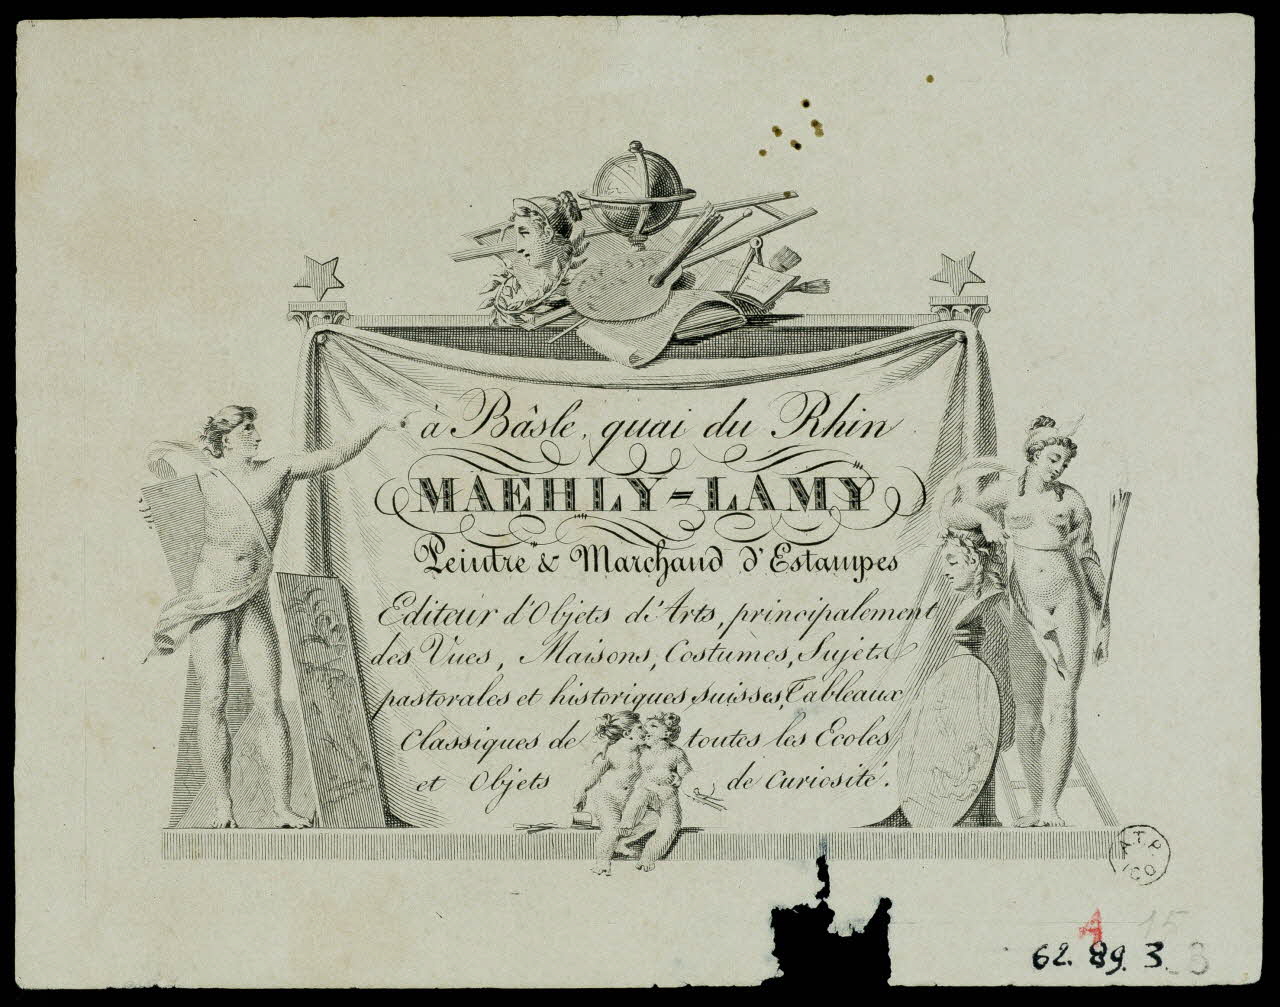 à Bâsle, quai du Rhin
MAEHLY=LAMY
Peintre & Marchand d'Estampes
Editeur d'Objets d'Arts, principalement
des Vues, Maisons, Costumes, Sujets
pastorales et historiques suisses, Tableaux
Classiques de toutes les Ecoles
et Objets de Curiosité.
A.T.P.
ICO
A 15
62. 89. 3. B